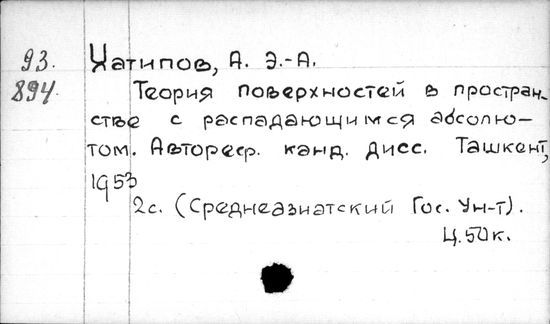 93. Хатипов, А. Э.-А.
894. Теория поверхностей в простран-
стве с распадающимся абсолю-
том. Автореф. канд. дисс. Ташкент,
1953
2с. (Среднеазиатский Гос. Ун-т).
Ц. 50 к.